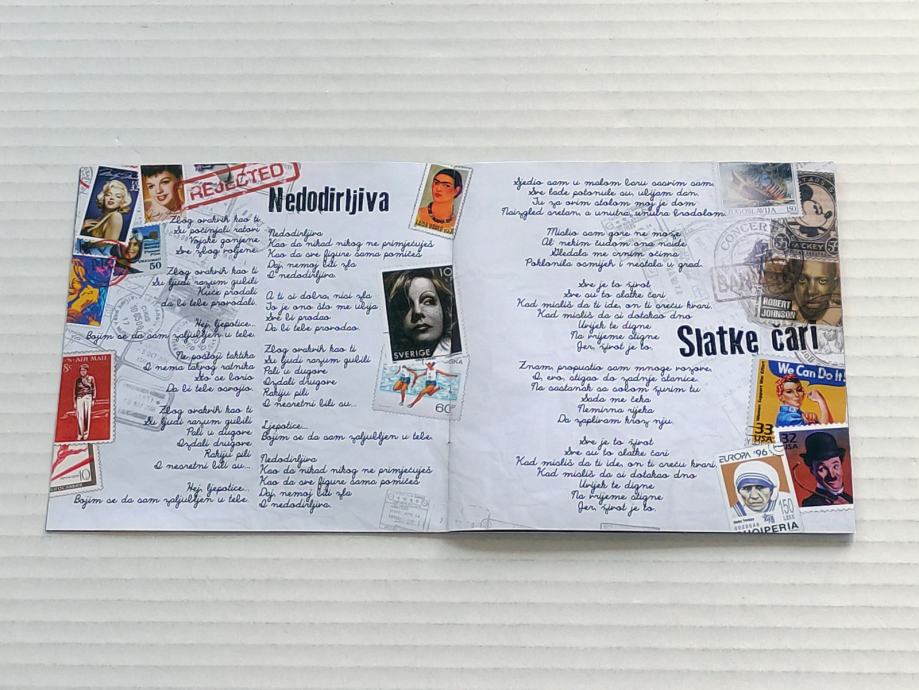 REJECTED
Nedodirljiva
Zbog ovakvih kao ti
Su počinjali ratovi
Vojske gonjene
Sve zbog voljene
Zbog ovakvih kao ti
Su ljudi razum gubili
Kuće prodali
da bi tebe provodali
Hej, ljepotice...
Bojim se da sam zaljubljen u tebe
Ne postoji taktika
I nema takvog ratnika
Što se borio
Da bi tebe osvojio
Zbog ovakvih kao ti
Su ljudi razum gubili
Pali u drugove
Izdali drugove
Rakiju pili
I nesretni bili su...
Hej, ljepotice...
Bojim se da sam zaljubljen u tebe
Nedodirljiva
Kao da nikad nikog ne primjećuješ
Kao da sve figure sama pomičeš
Daj, nemoj biti zla
I nedodirljiva
A ti si dobra, nisi zla
To je ono što me ubija
Sve bi prodao
Da bi tebe provodao
Zbog ovakvih kao ti
Su ljudi razum gubili
Pali u dugove
Izdali drugove
Rakiju pili
I nesretni bili su...
Ljepotice...
Bojim se da sam zaljubljen u tebe
Nedodirljiva
Kao da nikad nikog ne primjećuješ
Kao da sve figure sama pomičeš
Daj, nemoj biti zla
I nedodirljiva
50
8c
US AIR MAIL
10
10
SVERIGE
60
Sjedio sam u malom baru sasvim sam
Sve lađe potonule su, ubijam dan
Tu za ovim stolom moj je dom
Naizgled sretan, a unutra, unutra brodolom
Mislio sam gore ne može
Al nekim čudom ona naiđe
Gledala me crnim očima
Poklonila osmijeh i nestala u grad
Sve je to život
Sve su to slatke čari
Kad misliš da ti ide, on ti sreću kvari
Kad misliš da si dotakao dno
Uvijek te digne
Na vrijeme stigne
Jer, život je to
Slatke čari
Znam, propustio sam mnoge vozove
I, evo, stigao do zadnje stanice
Na sastanak sa sobom žurim tu
Sada me čeka
Nemirna rijeka
Da zaplivam kroz nju
Sve je to život
Sve su to slatke čari
Kad misliš da ti ide, on ti sreću kvari
Kad misliš da si dotakao dno
Uvijek te digne
Na vrijeme stigne
Jer, život je to
JUGOSLAVIJA 150
CONCERT
ROBERT
JOHNSON
We Can Do It!
33
USA
32
USA
EUROPA '96
150
LEKE
SHQIPERIA